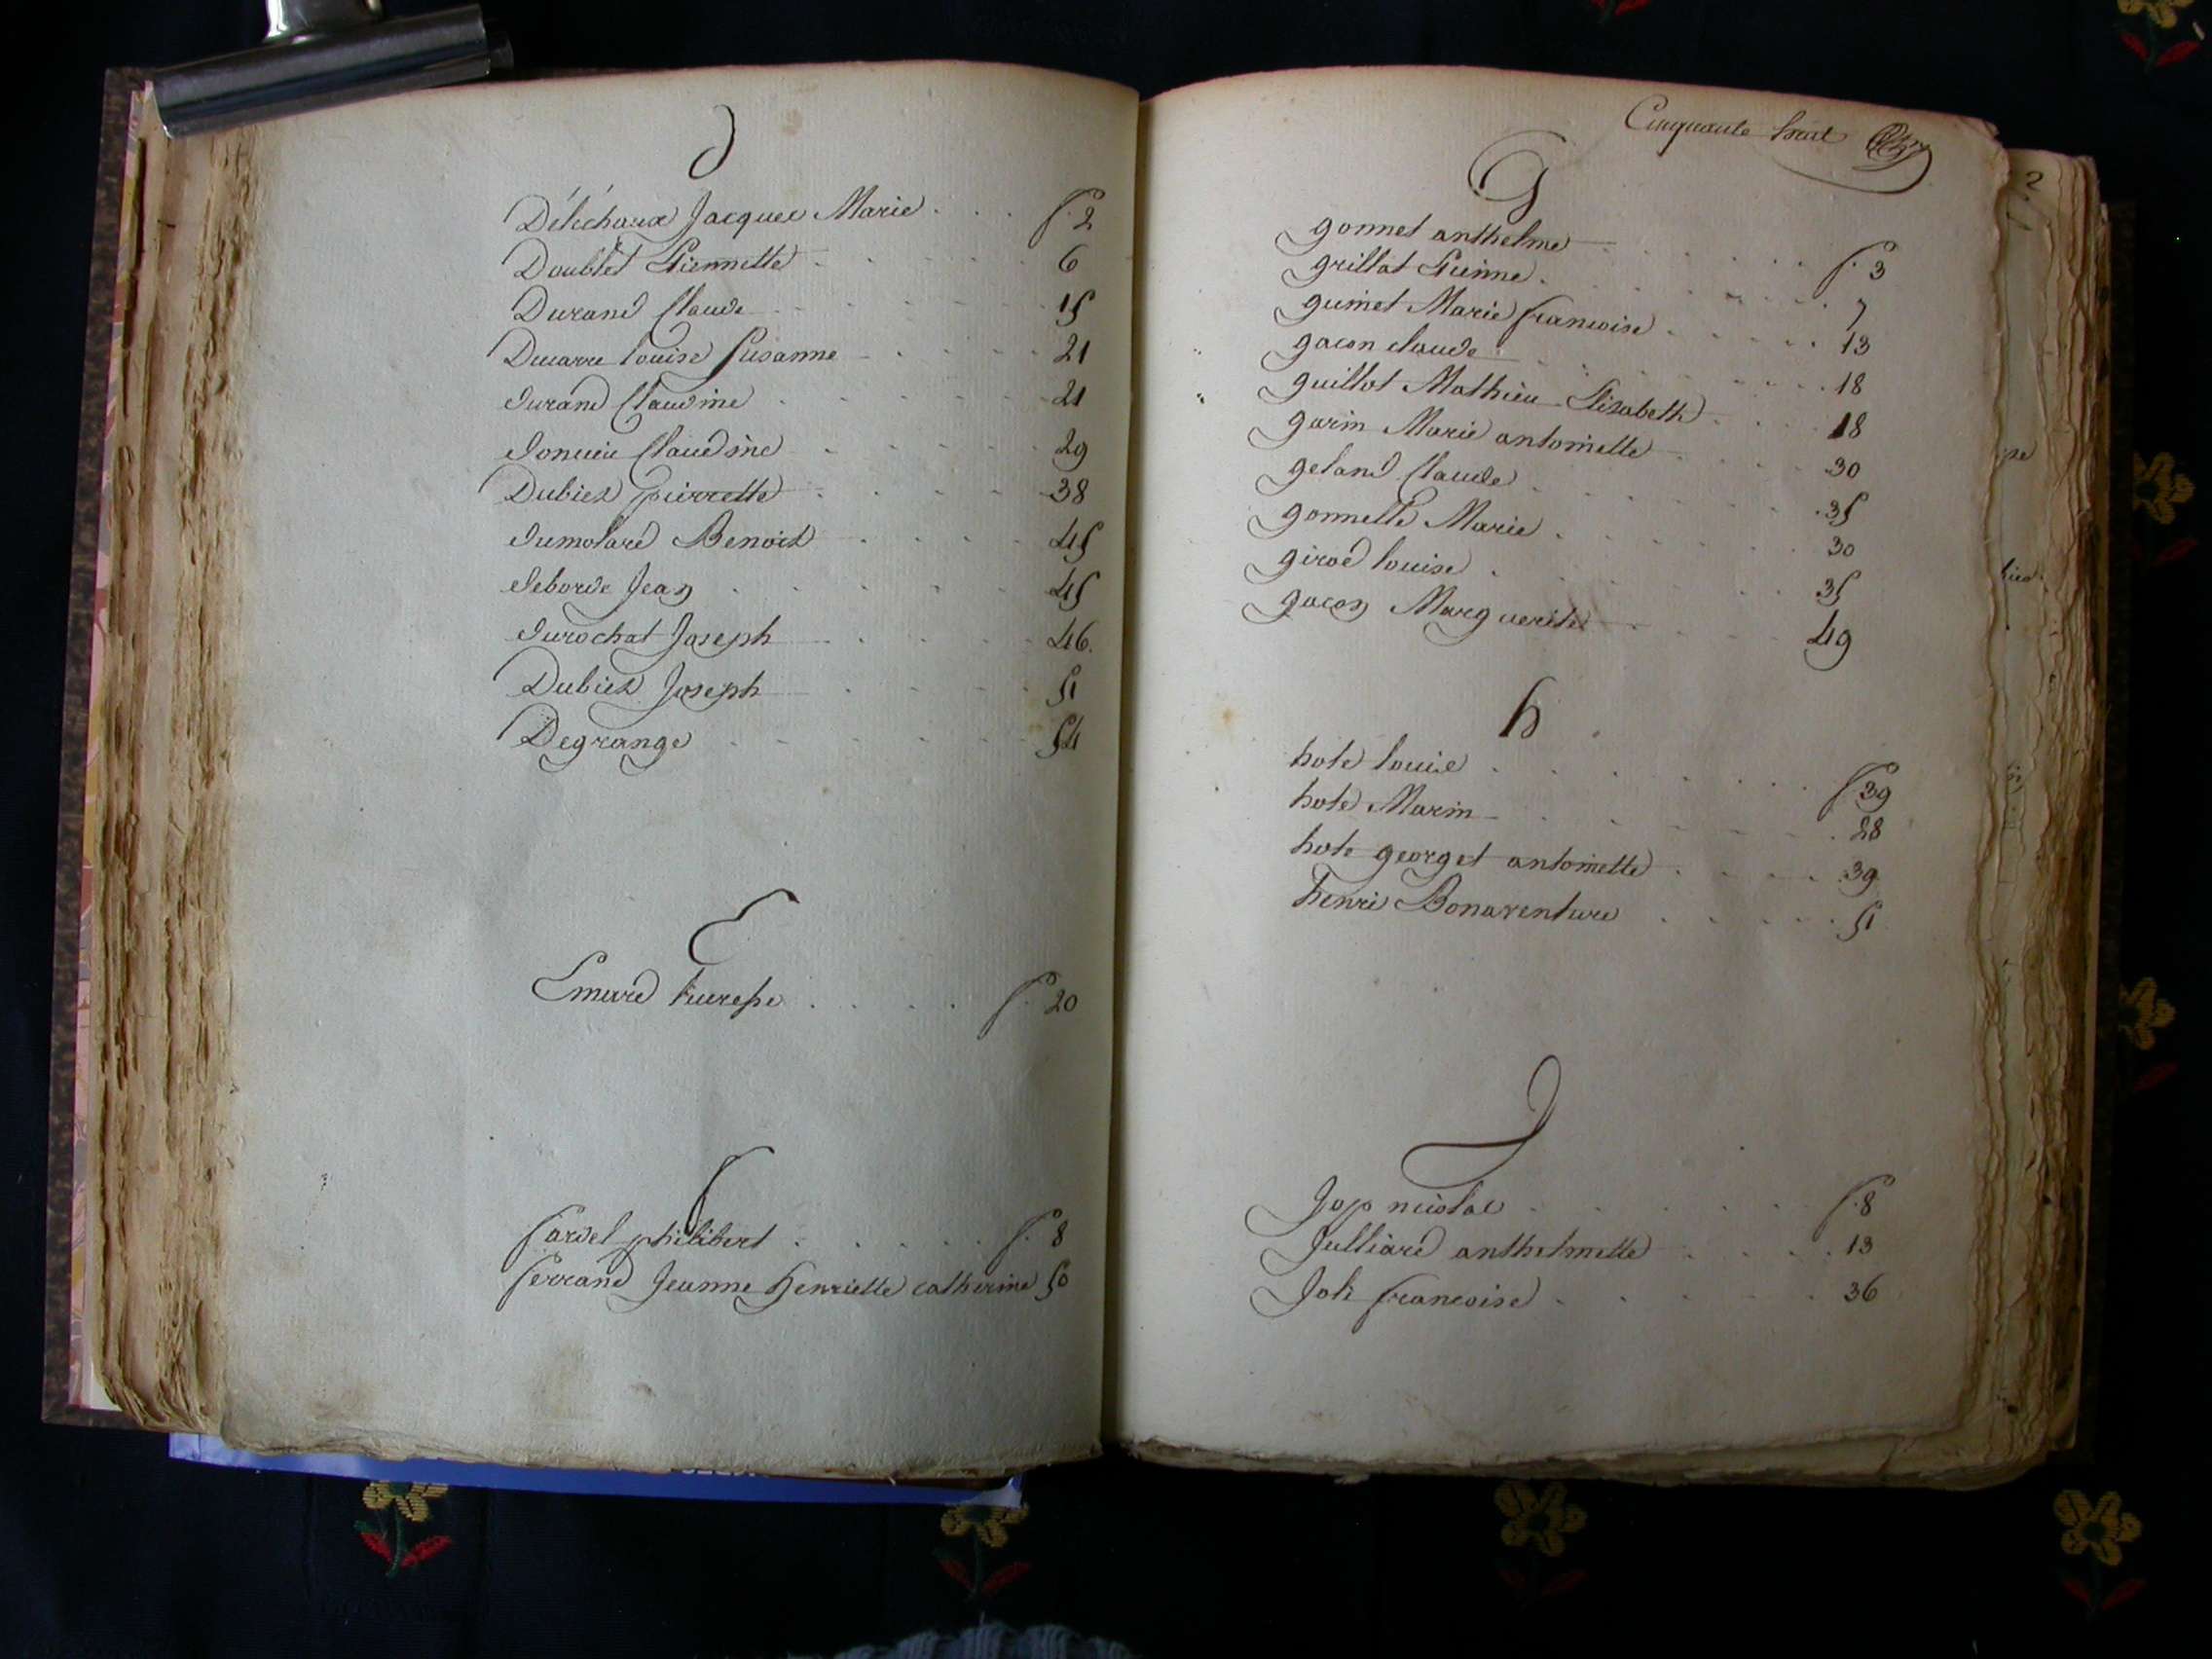 D
Déléchaux Jacques Marie . . . f. 2
Doublet Etiennette . . . 6
Durand Claude . . . 15
Ducarre louise Susanne . . . 21
durand Claudine . . . 21
Claudine . . . 29
Dubiez pierrette . . . 38
dumolard Benoit . . . 45
deborde Jean . . . 45
durochat Joseph . . . 46.
Dubiez Joseph . . . 51
Degrange . . . 54
E
Emard . . . f. 20
f
fardel philibert . . . f. 8
ferrand Jeanne Henriette catherine 50
Cinquante huit
G
gonnet anthelme . . . f. 3
grillat Etienne . . . 7
guinet Marie francoise . . . 13
gacon claude . . . 18
guillot Mathieu Elisabeth . . . 18
garin Marie antoinette . . . 30
geland Claude . . . 35
gonnette Marie . . . 30
girod louise . . . 35
gacon Marguerite . . . 49
h
hote louise . . . f. 39
hote Marin . . . 28
hote georget antoinette . . . 39
henri Bonaventure . . . 51
J
Jop nicolas . . . f. 8
Julliard anthelmette . . . 13
Joli francoise . . . 36